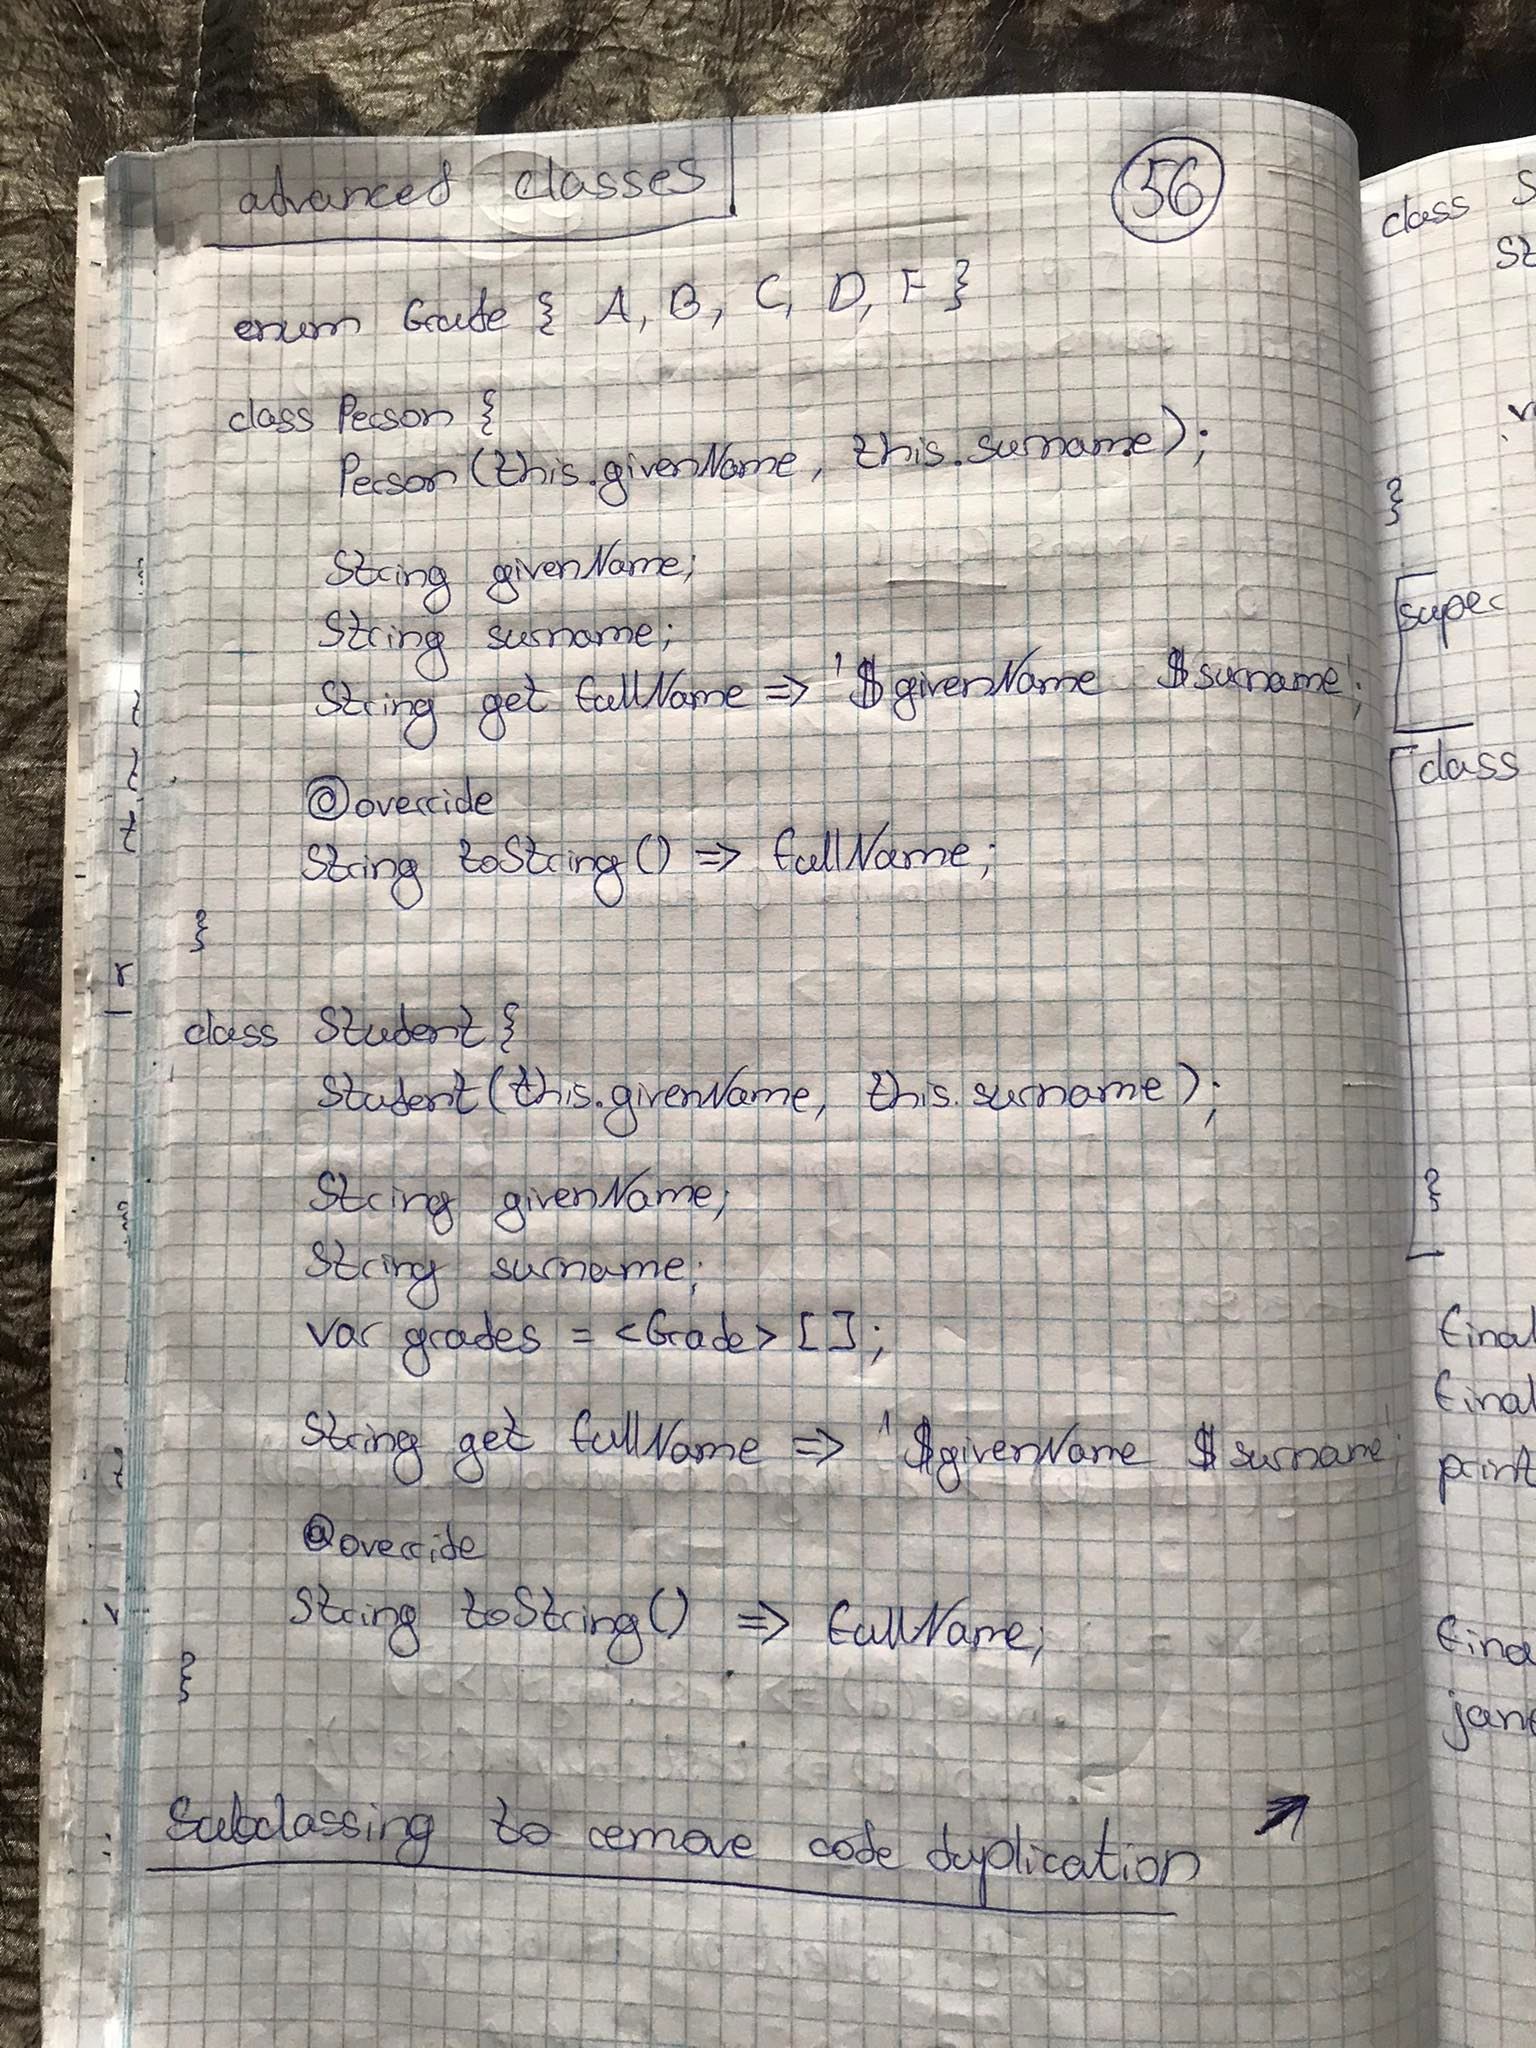 advanced classes
56
enum Grade { A, B, C, D, F }
class Person {
Person(this.givenName, this.surname);
String givenName;
String surname;
String get fullName => '$givenName $surname';
@override
String toString() => fullName;
}
class Student {
Student(this.givenName, this.surname);
String givenName;
String surname;
var grades = <Grade> [];
String get fullName => '$givenName $surname'
@override
String toString() => fullName;
}
Subclassing to remove code duplication
class S
St
}
super
class
}
final
final
print
fina
jane